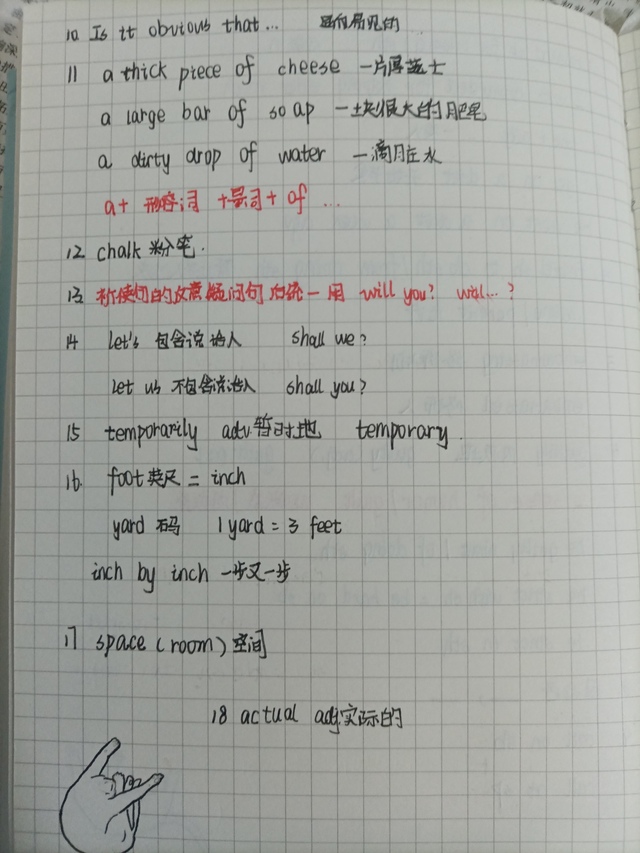 10 Is it obvious that... 显而易见的
11 a thick piece of cheese 一片厚芝士
a large bar of soap 一块很大的肥皂
a dirty drop of water 一滴脏水
a+ 形容词 +量词+ of ...
12 chalk 粉笔.
13 祈使句的反意疑问句 后统一用 will you? will...?
14 let's 包含说话人 shall we?
let us 不包含说话人 shall you?
15 temporarily adv暂时地 temporary.
16. foot英尺 = inch
yard 码 1 yard = 3 feet
inch by inch 一步又一步
17 space (room) 空间
18 actual adj实际的